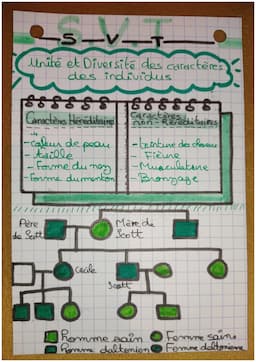 S.V.T
Unité et Diversité des caractères
des individus
Caractères Héréditaire
Caractères
non-Héréditaires
- Couleur de peau
- Taille
- Forme du nez
- Forme du menton
- Teinture des cheveux
- Fièvre
- Musculature
- Bronzage
Père
de Scott
Mère de
Scott
Cécile
Scott
Homme sain
Femme saine
Homme daltonien
Femme daltonienne